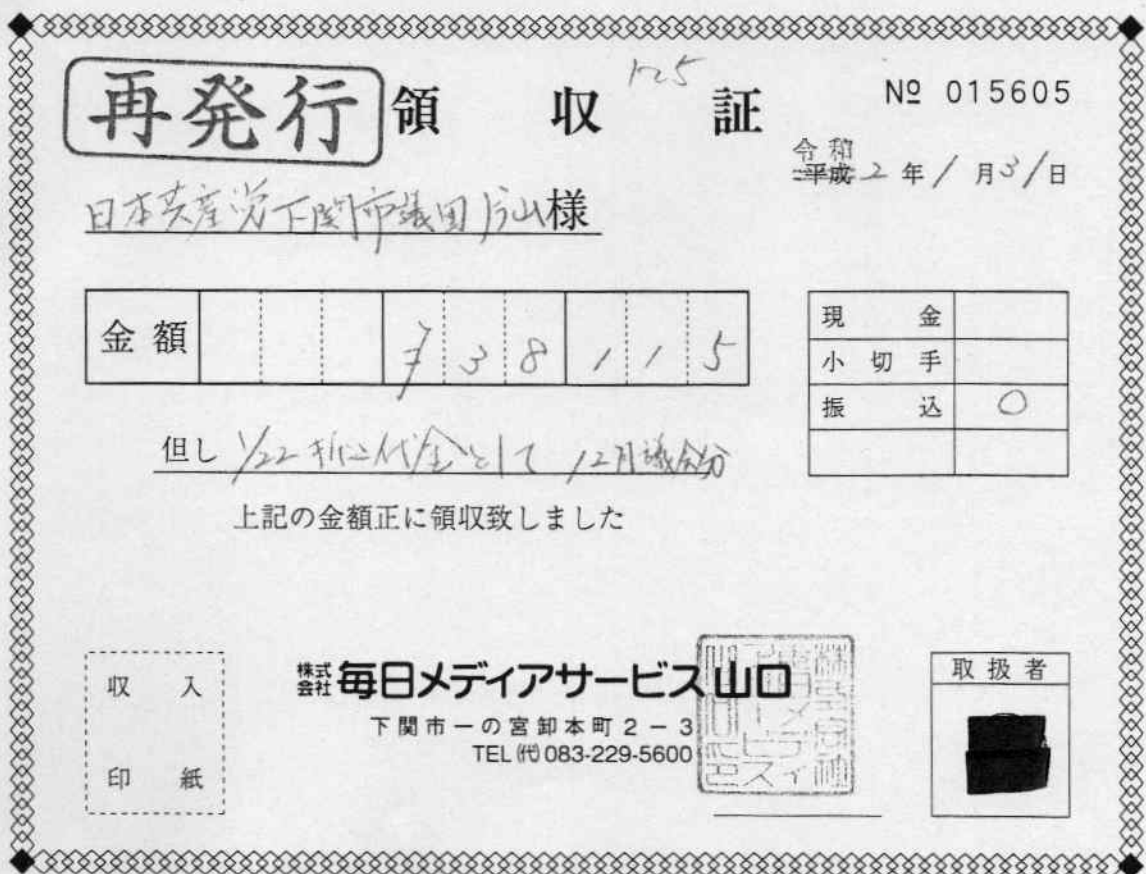 再発行 領収証
№ 015605
令和
平成 2年1月31日
日本共産党下関市議団片山様
金額 ¥38115
現金
小切手
振込 ○
但し 1/22 折込代金として 12月議会分
上記の金額正に領収致しました
収入
印紙
株式会社 毎日メディアサービス山口
下関市一の宮卸本町2-3
TEL(代)083-229-5600
取扱者